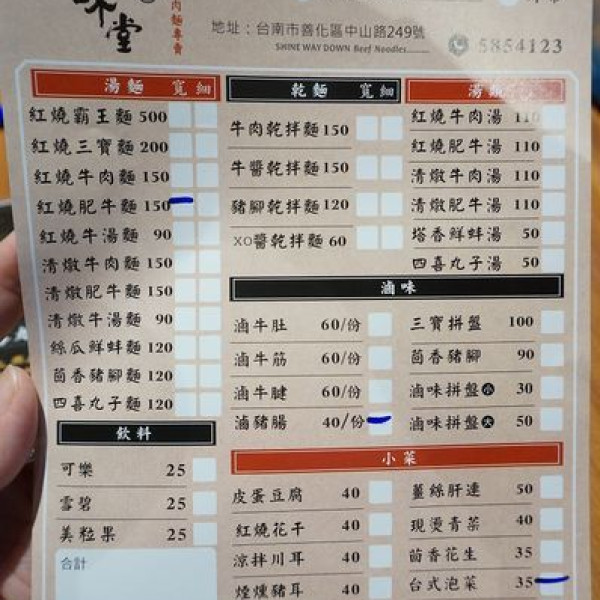 堂
肉麵專賣
地址：台南市善化區中山路249號
SHINE WAY DOWN Beef Noodles
5854123
湯麵 寬 細
紅燒霸王麵 500
紅燒三寶麵 200
紅燒牛肉麵 150
紅燒肥牛麵 150
紅燒牛湯麵 90
清燉牛肉麵 150
清燉肥牛麵 150
清燉牛湯麵 90
絲瓜鮮蚌麵 120
茴香豬腳麵 120
四喜丸子麵 120
飲料
可樂 25
雪碧 25
美粒果 25
合計
乾麵 寬 細
牛肉乾拌麵 150
牛醬乾拌麵 150
豬腳乾拌麵 120
XO醬乾拌麵 60
湯類
紅燒牛肉湯 110
紅燒肥牛湯 110
清燉牛肉湯 110
清燉肥牛湯 110
塔香鮮蚌湯 50
四喜丸子湯 50
滷味
滷牛肚 60/份
滷牛筋 60/份
滷牛腱 60/份
滷豬腸 40/份
三寶拼盤 100
茴香豬腳 90
滷味拼盤 小 30
滷味拼盤 大 50
小菜
皮蛋豆腐 40
紅燒花干 40
涼拌川耳 40
煙燻豬耳 40
薑絲肝連 50
現燙青菜 40
茴香花生 35
台式泡菜 35